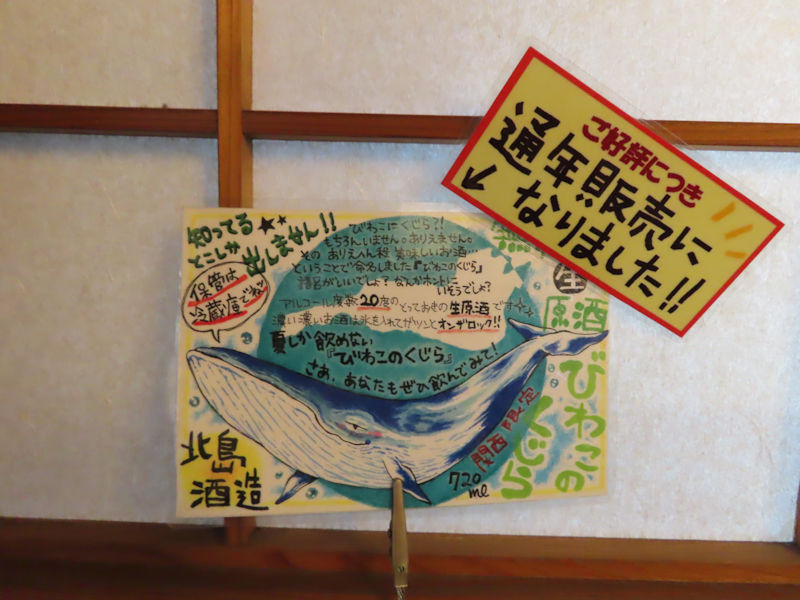 ご好評につき
通年販売に
なりました!!
知ってる
とこしか
出しません!!
保管は
冷蔵庫でネッ
びわこにくじら?!
もちろん、いません。ありえません。
その ありえへん程 美味しいお酒…
ということで命名しました『びわこのくじら』
語呂がいいでしょ? なんかホントに
いそうでしょ?
アルコール度数20度の とっておきの 生原酒です☆☆
濃い濃いお酒は氷を入れてガツンとオンザロック!!
夏しか飲めない
『びわこのくじら』
さあ、あなたもぜひ飲んでみて!
生
原酒
びわこの
くじら
関西限定
720
ml
北島
酒造